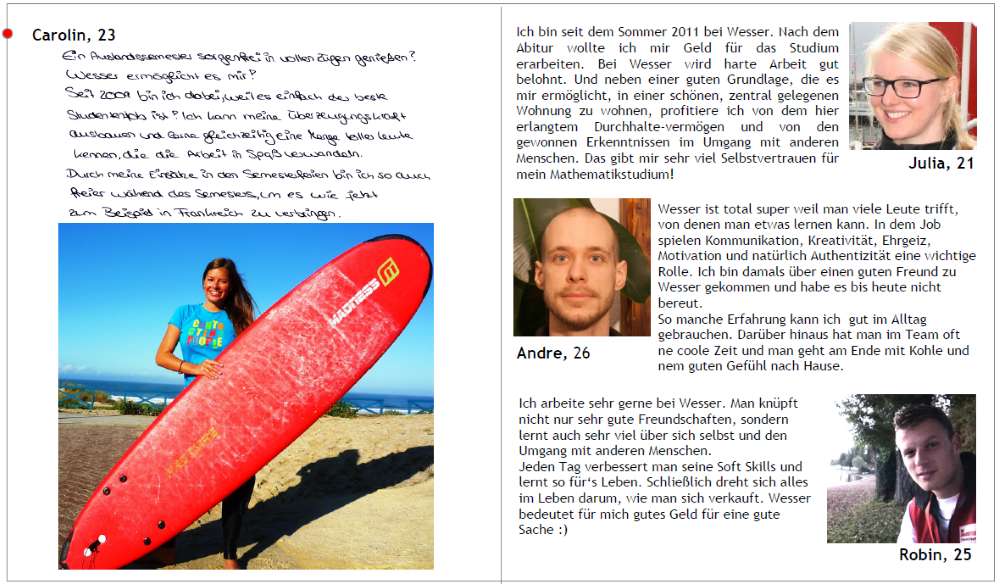 Carolin, 23
Ein Auslandssemester sorgenfrei in vollen Zügen genießen?
Wesser ermöglicht es mir!
Seit 2009 bin ich dabei, weil es einfach der beste
Studentenjob ist! Ich kann meine Überzeugungskraft
ausbauen und lerne gleichzeitig eine Menge toller Leute
kennen, die die Arbeit in Spaß verwandeln.
Durch meine Einsätze in den Semesterferien bin ich so auch
freier während des Semesters, um es wie jetzt
zum Beispiel in Frankreich zu verbringen.
MADNESS
Ich bin seit dem Sommer 2011 bei Wesser. Nach dem
Abitur wollte ich mir Geld für das Studium
erarbeiten. Bei Wesser wird harte Arbeit gut
belohnt. Und neben einer guten Grundlage, die es
mir ermöglicht, in einer schönen, zentral gelegenen
Wohnung zu wohnen, profitiere ich von dem hier
erlangtem Durchhalte-vermögen und von den
gewonnen Erkenntnissen im Umgang mit anderen
Menschen. Das gibt mir sehr viel Selbstvertrauen für
mein Mathematikstudium!
Julia, 21
Wesser ist total super weil man viele Leute trifft,
von denen man etwas lernen kann. In dem Job
spielen Kommunikation, Kreativität, Ehrgeiz,
Motivation und natürlich Authentizität eine wichtige
Rolle. Ich bin damals über einen guten Freund zu
Wesser gekommen und habe es bis heute nicht
bereut.
So manche Erfahrung kann ich gut im Alltag
gebrauchen. Darüber hinaus hat man im Team oft
ne coole Zeit und man geht am Ende mit Kohle und
nem guten Gefühl nach Hause.
Andre, 26
Ich arbeite sehr gerne bei Wesser. Man knüpft
nicht nur sehr gute Freundschaften, sondern
lernt auch sehr viel über sich selbst und den
Umgang mit anderen Menschen.
Jeden Tag verbessert man seine Soft Skills und
lernt so für's Leben. Schließlich dreht sich alles
im Leben darum, wie man sich verkauft. Wesser
bedeutet für mich gutes Geld für eine gute
Sache :)
Robin, 25